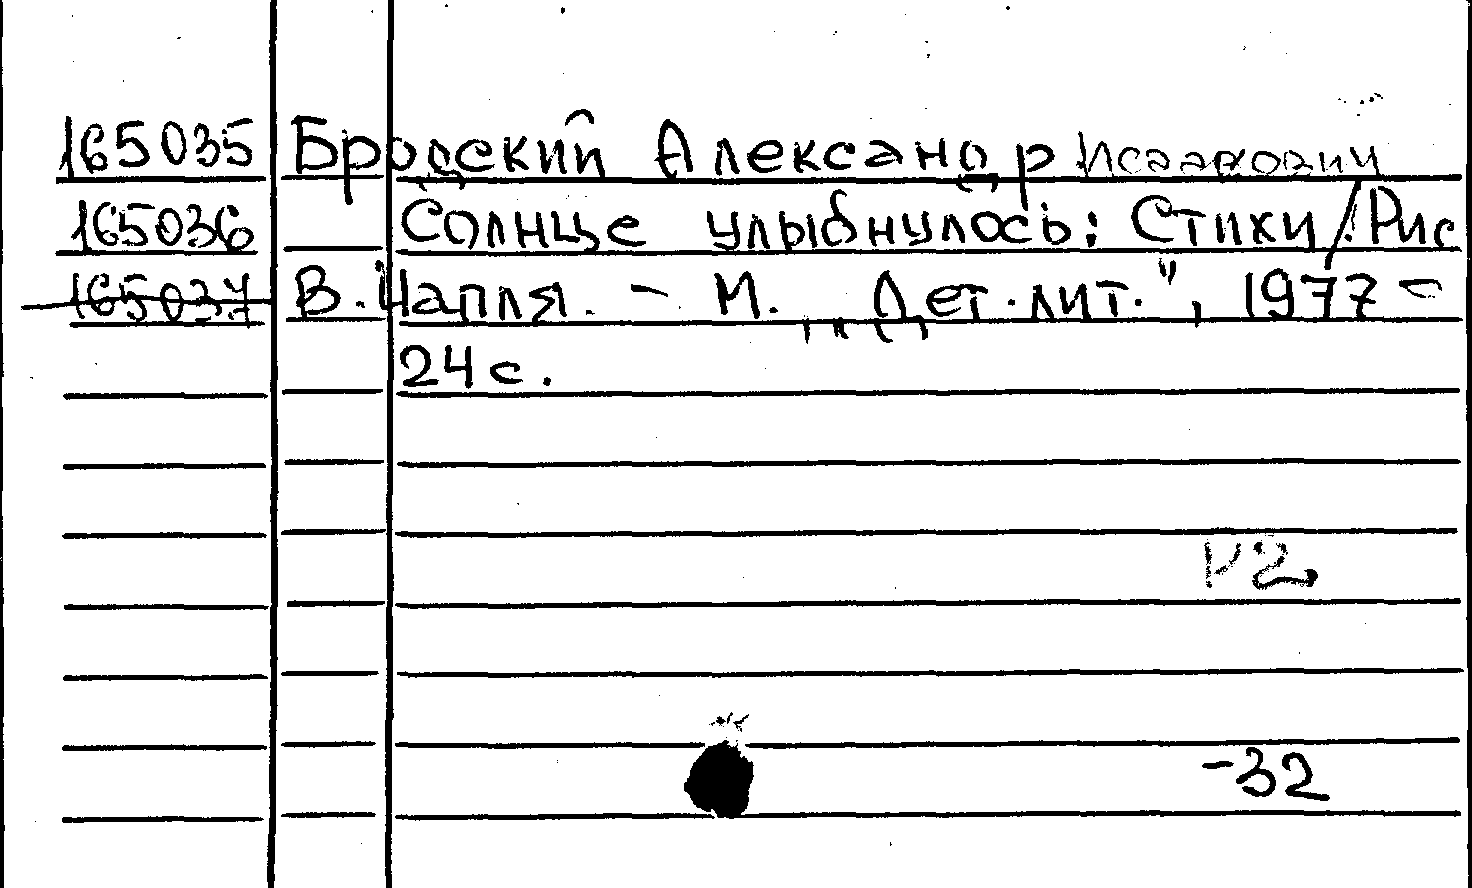 165035 Бродский Александр Исаакович
165036 Солнце улыбнулось: Стихи/. Рис
165037 В. Чапля. - М. „Дет. лит.", 1977 -
24 с.
Р2
-32